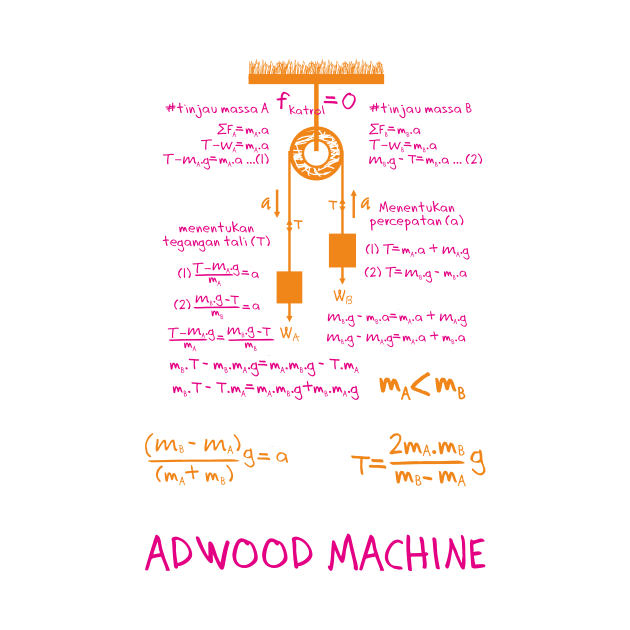 f katrol = 0
#tinjau massa A
ΣF_A = m_A.a
T - W_A = m_A.a
T - m_A.g = m_A.a ...(1)
#tinjau massa B
ΣF_B = m_B.a
T - W_B = m_B.a
m_B.g - T = m_B.a ... (2)
a
T
T
a
W_A
W_B
menentukan
tegangan tali (T)
(1) (T - m_A.g)/m_A = a
(2) (m_B.g - T)/m_B = a
(T - m_A.g)/m_A = (m_B.g - T)/m_B
m_B.T - m_B.m_A.g = m_A.m_B.g - T.m_A
m_B.T - T.m_A = m_A.m_B.g + m_B.m_A.g
Menentukan
percepatan (a)
(1) T = m_A.a + m_A.g
(2) T = m_B.g - m_B.a
m_B.g - m_B.a = m_A.a + m_A.g
m_B.g - m_A.g = m_A.a + m_B.a
m_A < m_B
(m_B - m_A)/(m_A + m_B) g = a
T = (2m_A.m_B)/(m_B - m_A) g
ADWOOD MACHINE